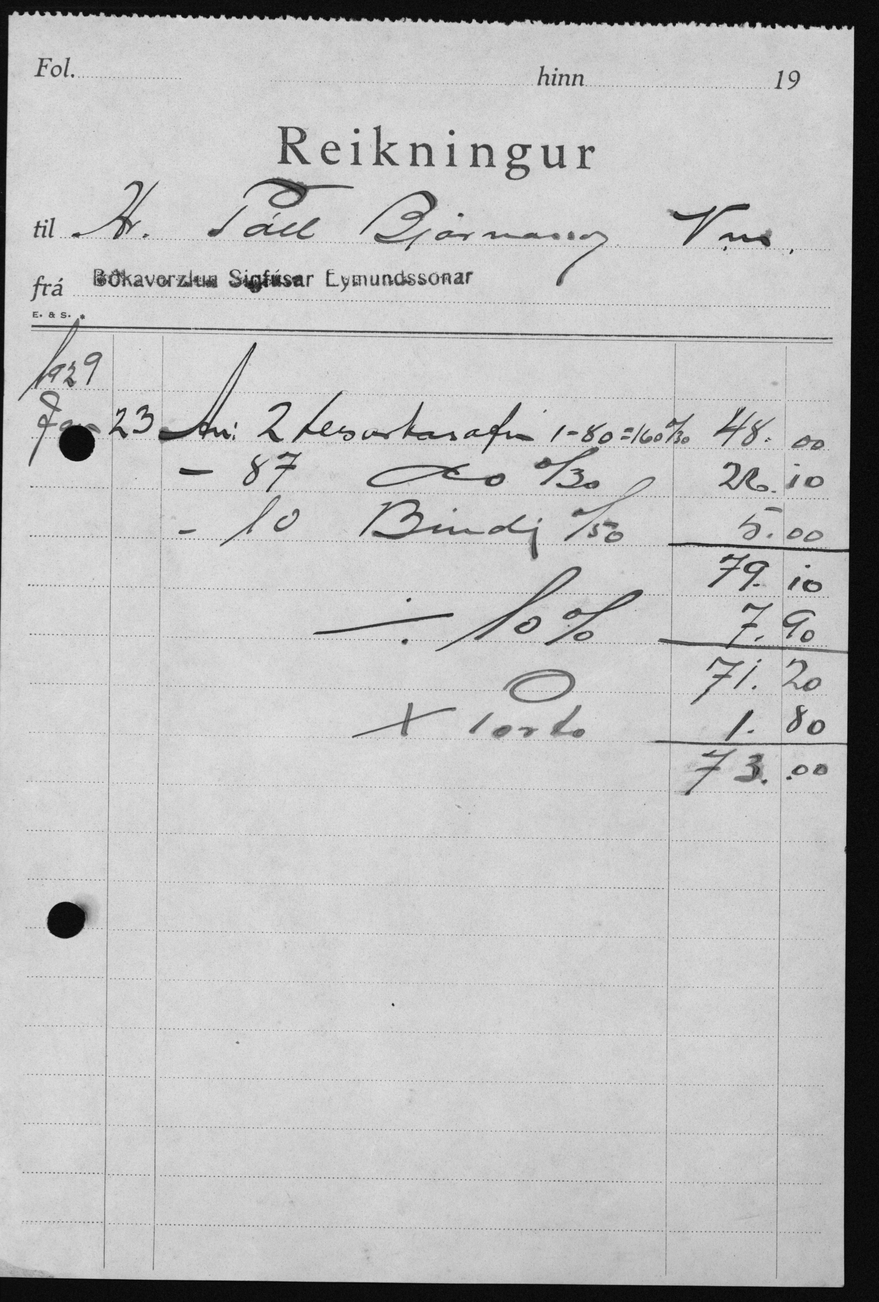 Fol. hinn 19
Reikningur
til Hr. Páll Bjarnason, Vm.
frá Bókaverzlun Sigfúsar Eymundssonar
E. & S.
1929
Jan 23 An: 2 Lesarkasafn 1-80=160 %30 48.00
- 87 do %30 26.10
- 10 Bindi %50 5.00
79.10
÷ 10% 7.90
71.20
+ Porto 1.80
73.00